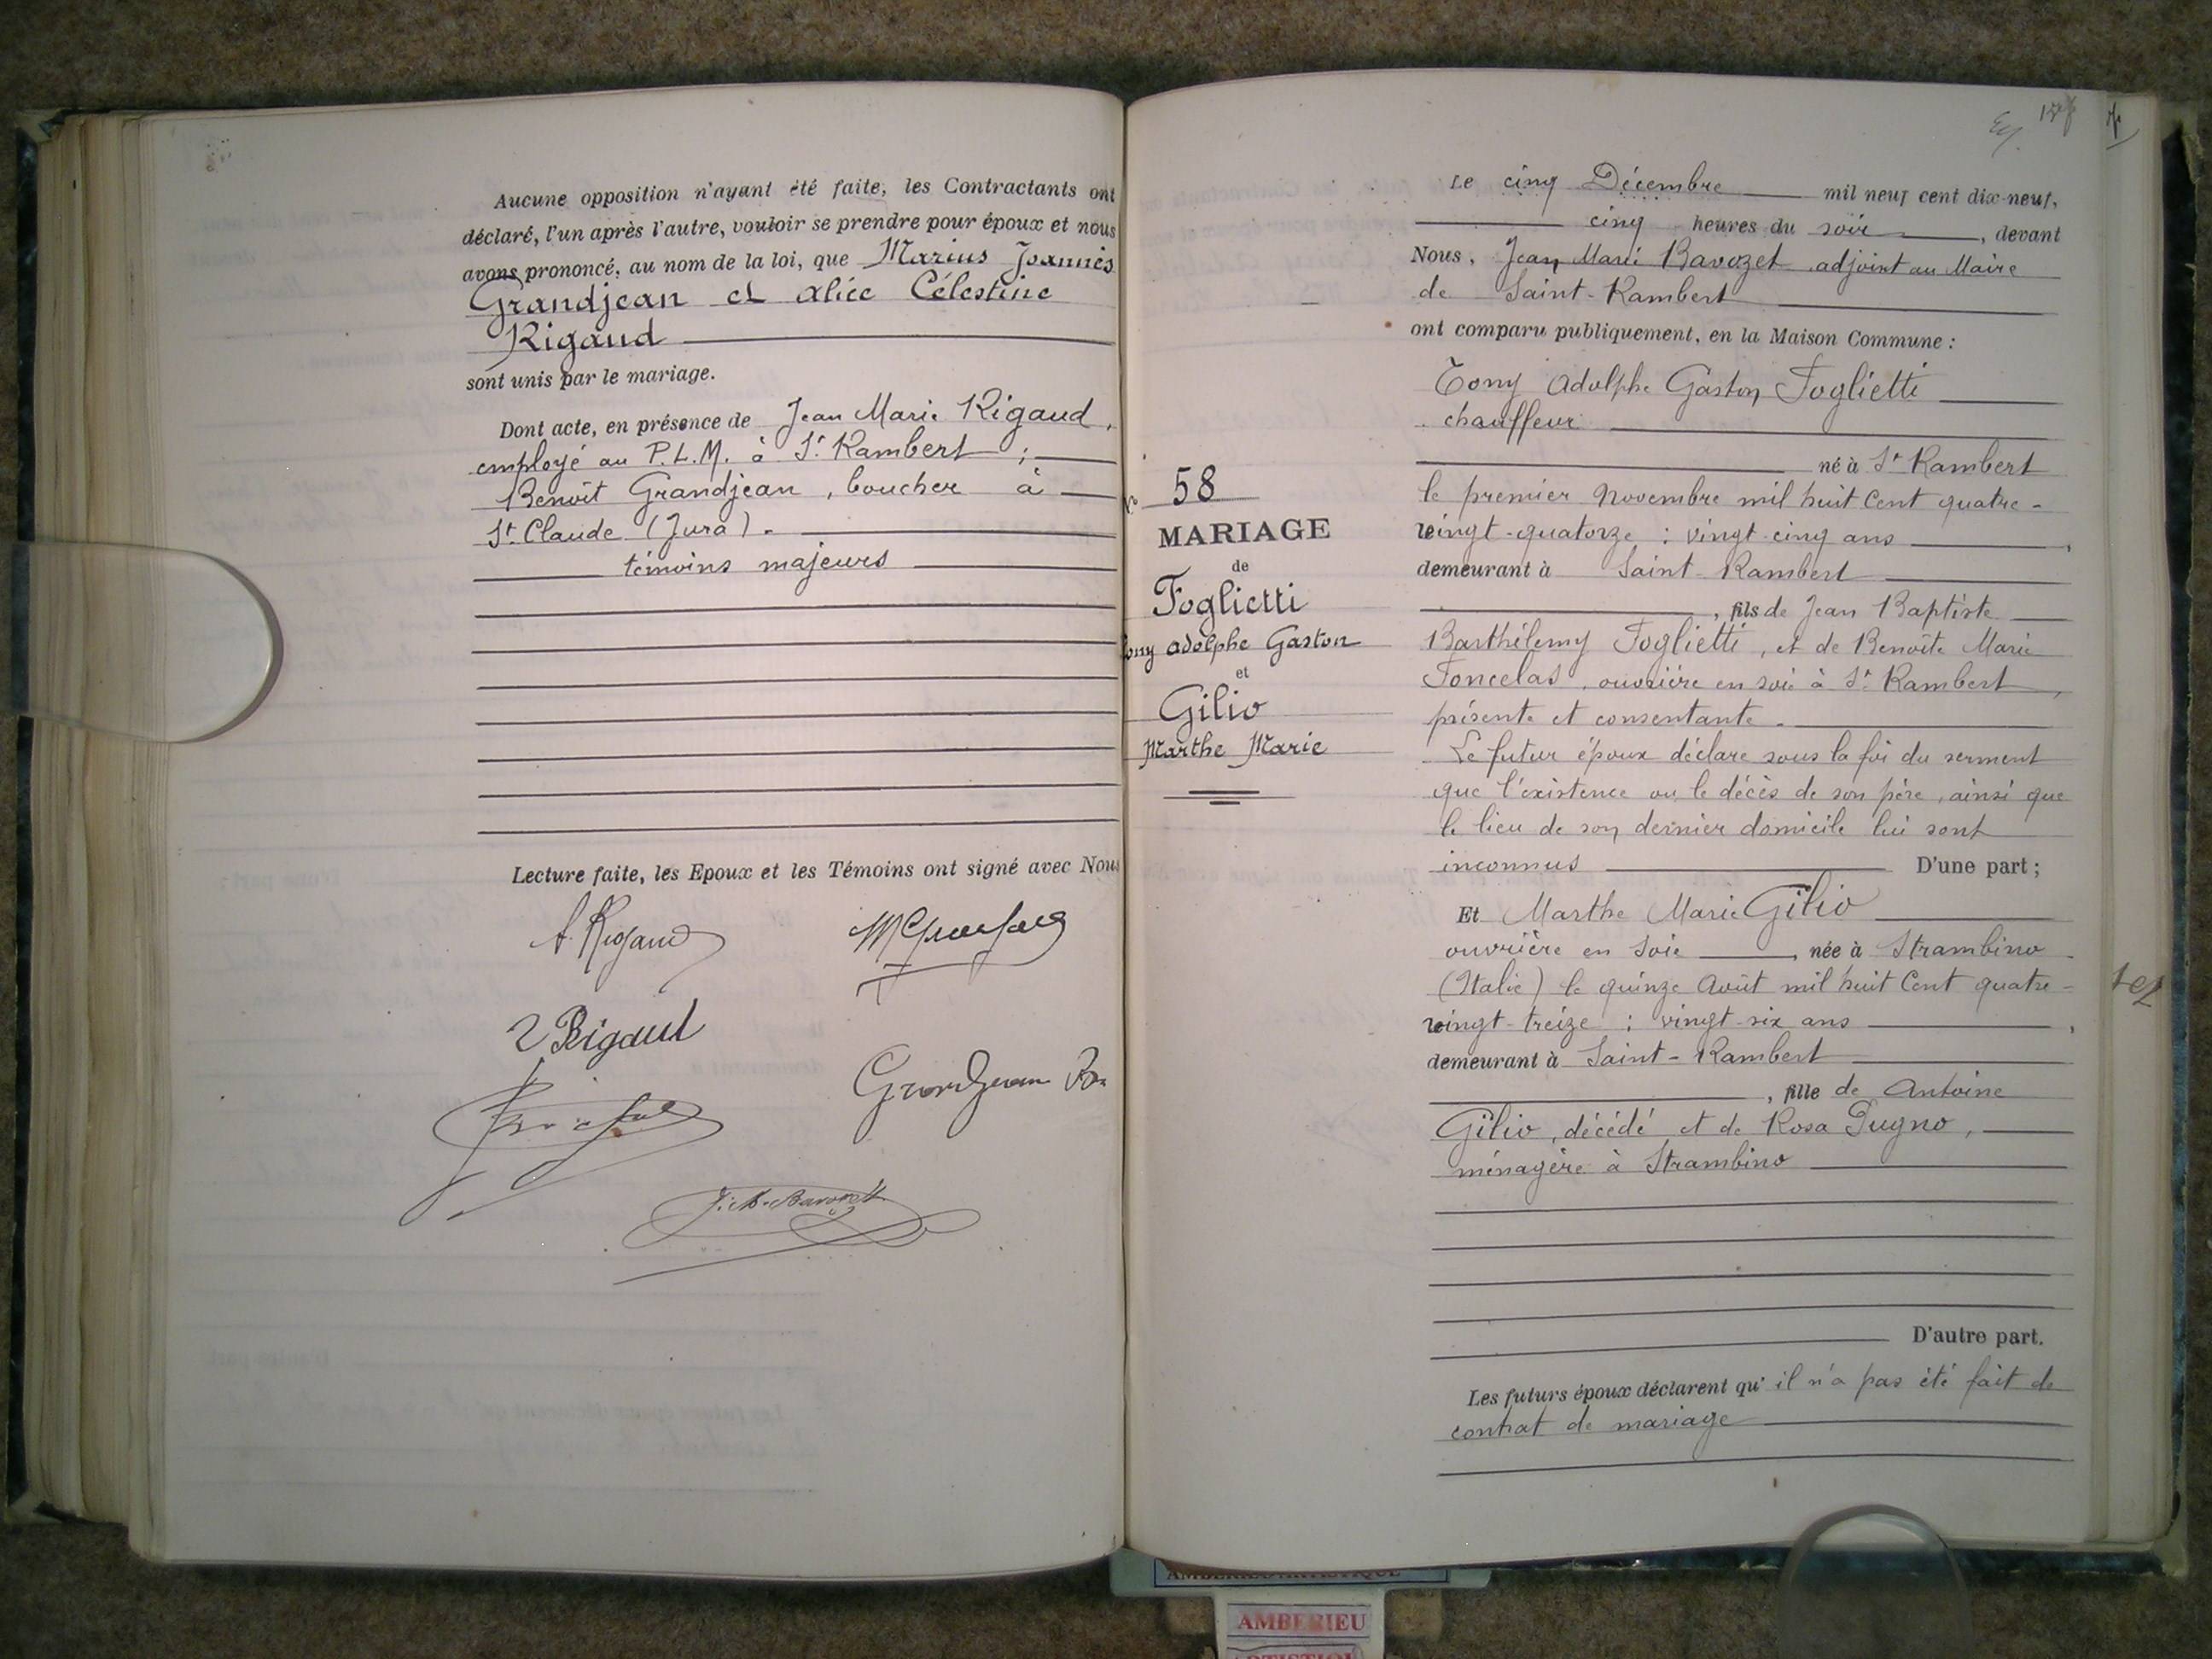 Aucune opposition n'ayant été faite, les Contractants ont
déclaré, l'un après l'autre, vouloir se prendre pour époux et nous
avons prononcé, au nom de la loi, que Marius Joannès
Grandjean et Alice Célestine
Rigaud
sont unis par le mariage.
Dont acte, en présence de Jean Marie Rigaud,
employé au P.L.M. à St Rambert ;
Benoît Grandjean, boucher à
St Claude (Jura).
témoins majeurs
Lecture faite, les Epoux et les Témoins ont signé avec Nous
A. Rigaud
Rigaud
Grandjean
N° 58
MARIAGE
de
Foglietti
Tony Adolphe Gaston
et
Gilio
Marthe Marie
Le cinq Décembre mil neuf cent dix-neuf,
cinq heures du soir, devant
Nous, Jean Marie Bavozet adjoint au Maire
de Saint-Rambert
ont comparu publiquement, en la Maison Commune :
Tony Adolphe Gaston Foglietti
chauffeur
né à St Rambert
le premier Novembre mil huit cent quatre-
vingt-quatorze : vingt-cinq ans,
demeurant à Saint-Rambert
, fils de Jean Baptiste
Barthélemy Foglietti, et de Benoîte Marie
Foncelas, ouvrière en soie à St Rambert,
présente et consentante.
Le futur époux déclare sous la foi du serment
que l'existence ou le décès de son père, ainsi que
le lieu de son dernier domicile lui sont
inconnus D'une part ;
Et Marthe Marie Gilio
ouvrière en soie, née à Strambino
(Italie) le quinze Août mil huit cent quatre-
vingt-treize : vingt-six ans,
demeurant à Saint-Rambert
, fille de Antoine
Gilio, décédé et de Rosa Pugno,
ménagère à Strambino
D'autre part.
Les futurs époux déclarent qu'il n'a pas été fait de
contrat de mariage
AMBERIEU ARTISTIQUE
AMBERIEU